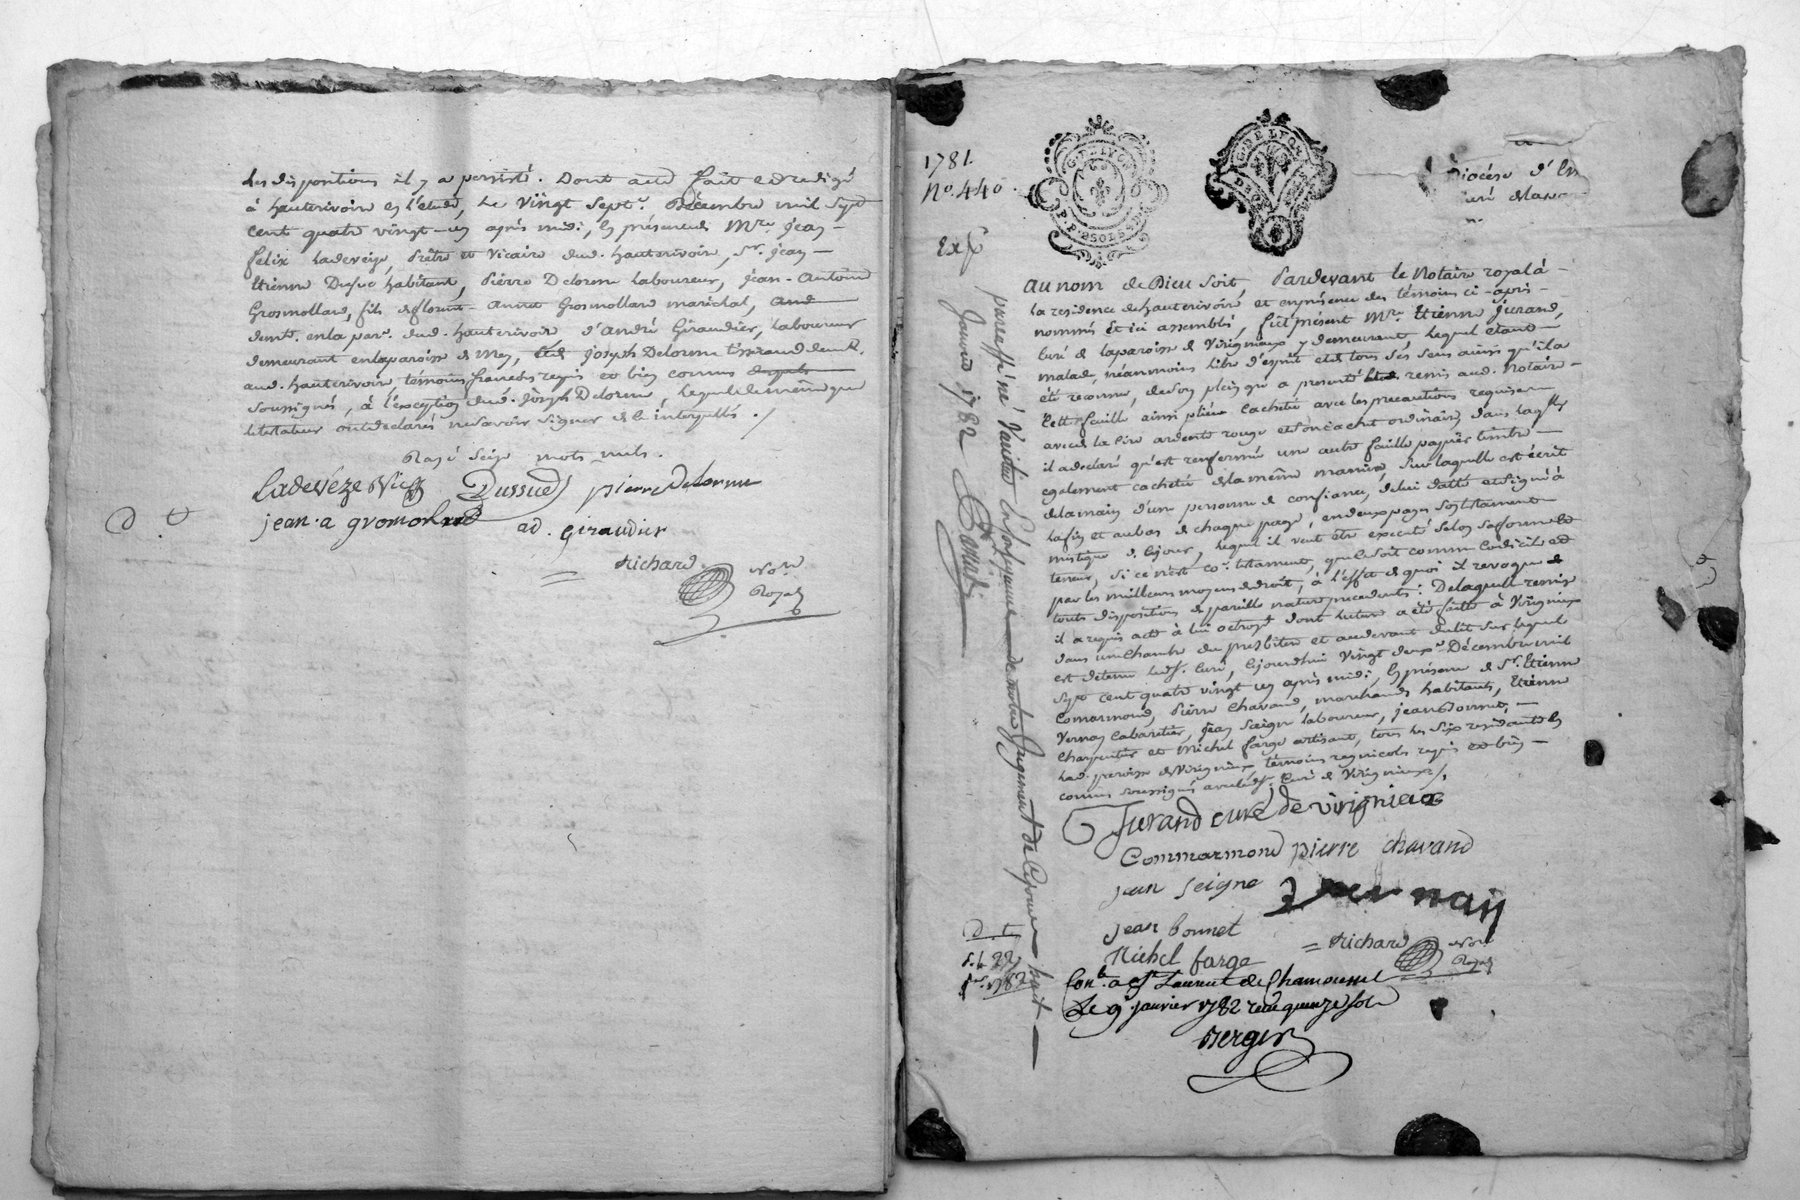 des dispositions il y a persisté. Dont acte fait et redigé
à hauterivoire en l'étude, le Vingt Sept.e Decembre mil Sept
Cent quatre vingt-un après midi, en présence de Mre. Jean
felix Ladeveze, Prêtre et Vicaire dud. hauterivoire, Sr. Jean
Etienne habitant, Pierre Delorme Laboureur, Jean-Antoine
Grosmollard, fils de Grosmollard maréchal,
demt. en la par. dud. hauterivoire d'André Giraudier, Laboureur
demeurant en la paroisse de Mey, Joseph Delorme tisserand demt.
aud. hauterivoire, témoins requis et bien connus
soussignés, à l'exception dud. Joseph Delorme, lequel de même que
le testateur ont declarés ne savoir signer de ce interpellés.
Rayé Seize mots nuls.
Ladevéze Vic. Dussud pierre delorme
jean-a gromolard ad. giraudier
Richard Not.re Royal
D. T.
1781.
No. 440.
G. DE LYON
P. P. 2 SOLS
G. DE LYON
Diocèse d'
curé
Exp.
au nom de Dieu soit, Pardevant le Notaire royal à
la residence de hauterivoire et en présence des témoins ci-après
nommés et ici assemblés, fut présent Mre. Etienne Jurand,
Curé de la paroisse de Virigneux y demeurant, lequel étant
malade, néanmoins libre d'esprit et de tous ses sens ainsi qu'il a
été reconnu, de son plein gré a presenté remis aud. Notaire
Cette feuille ainsi pliée cachetée avec les precautions requises
avec de la Cire ardente rouge et son cachet ordinaire, dans laquelle
il a declaré qu'est renfermé une autre feuille papier timbré
egalement cachetée de la même maniere, Sur laquelle est écrit
de la main d'une personne de confiance, de lui datté et signé à
la fin et au bas de chaque page, en deux pages son testament
mistique de ce jour, lequel il veut être executé selon sa forme et
teneur, Si ce n'est co.e testament, que ce soit comme Codicile et
par les meilleurs moyens de droit, à l'effet de quoi il revoque
toutes dispositions de pareille nature precedentes: De laquelle remise
il a requis acte à lui octroyé dont lecture a été faite à Virigneux
dans une chambre du presbitere et au devant du lit sur lequel
est détenu led. sr. Curé, cejourdhui Vingt deux.e Décembre mil
Sept cent quatre vingt un après midi, en présence de Sr. Etienne
Comarmond, Pierre Chavand, marchands habitants, Etienne
Vernay Cabaretier, Jean Seigne laboureur, jean Bonnet,
Charpentier et Michel farge artisant, tous les Six residants en
lad. paroisse de Virigneux témoins requis et bien
connus soussignés avec led. sr. Curé de Virigneux.
Jurand curé de virigneux
Commarmond pierre chavand
jean Seigne vernaÿ
jean bonnet
Michel farge Richard Not.re Royal
Con.le a St Laurent de Chamousset
Le 9.e janvier 1782 recu quinze sols
Berger
paraffé ne Varietur en l'ordonnance de notre Jugement de ce jour huit
Janvier 1782
D. T.